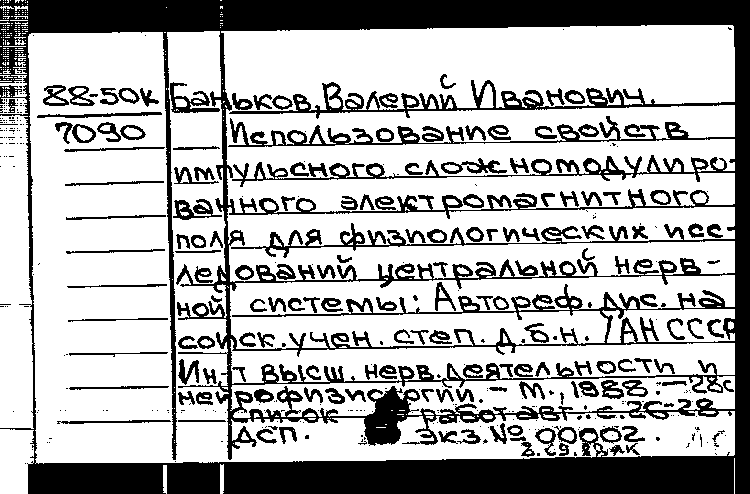 88-50к Баньков, Валерий Иванович.
7090 Использование свойств
импульсного сложномодулиро-
ванного электромагнитного
поля для физиологических исс-
ледований центральной нерв-
ной системы: Автореф. дис. на
соиск. учен. степ. д.б.н. / АН СССР
Ин-т высш. нерв. деятельности и
нейрофизиологии. - М., 1988. - 28с
Список работ авт.: с. 26-28.
ДСП. экз. № 00002.